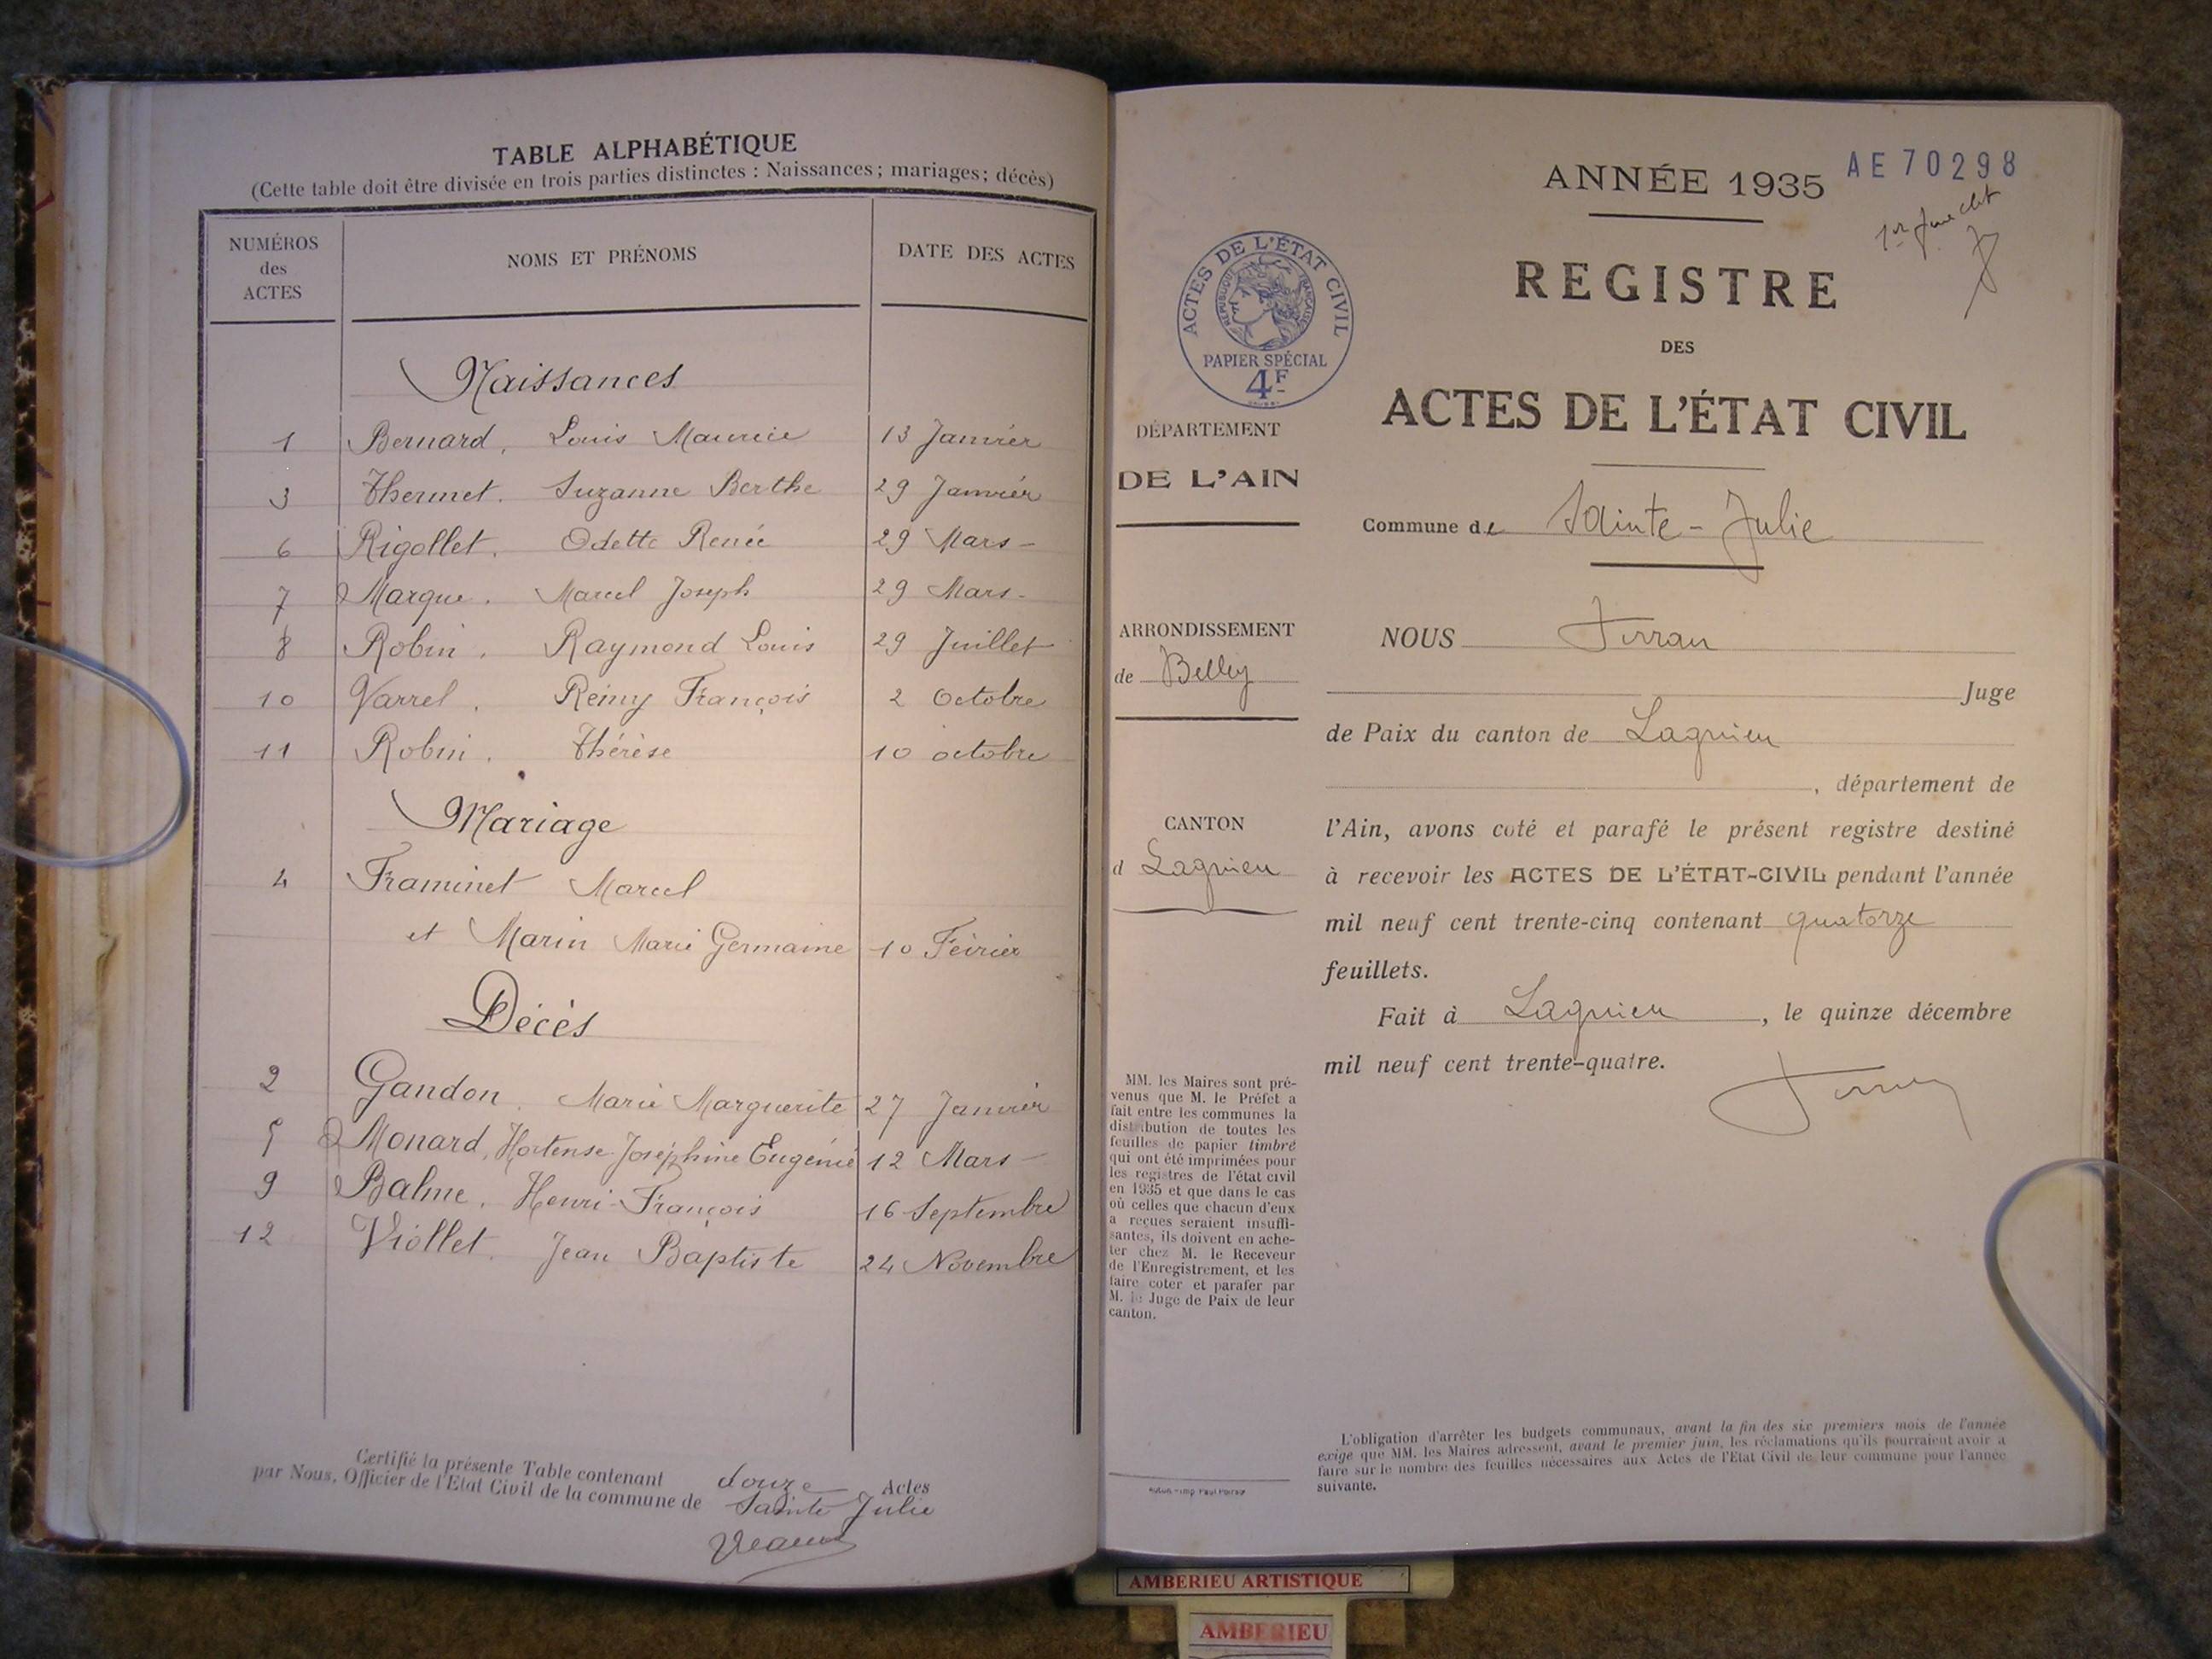 TABLE ALPHABÉTIQUE
(Cette table doit être divisée en trois parties distinctes : Naissances; mariages; décès)
NUMÉROS des ACTES NOMS ET PRÉNOMS DATE DES ACTES
Naissances
1 Bernard, Louis Maurice 13 Janvier
3 Thermet. Suzanne Berthe 29 Janvier
6 Rigollet. Odette Renée 29 Mars -
7 Margue. Marcel Joseph 29 Mars -
8 Robin. Raymond Louis 29 Juillet
10 Varrel. Rémy François 2 Octobre
11 Robin. Thérèse 10 octobre
Mariage
4 Framinet Marcel
et Marin Marie Germaine 10 Février
Décès
2 Gandon. Marie Marguerite 27 Janvier
5 Monard, Hortense Joséphine Eugénie 12 Mars -
9 Balme. Henri-François 16 Septembre
12 Viollet. Jean Baptiste 24 Novembre
Certifié la présente Table contenant douze Actes
par Nous, Officier de l'Etat Civil de la commune de Sainte Julie
AE 70298
ANNÉE 1935
REGISTRE
DES
ACTES DE L'ÉTAT CIVIL
Commune de Sainte-Julie
NOUS
Juge
de Paix du canton de Lagnieu
, département de
l'Ain, avons coté et parafé le présent registre destiné
à recevoir les ACTES DE L'ÉTAT-CIVIL pendant l'année
mil neuf cent trente-cinq contenant quatorze
feuillets.
Fait à Lagnieu, le quinze décembre
mil neuf cent trente-quatre.
ACTES DE L'ÉTAT CIVIL
RÉPUBLIQUE FRANÇAISE
PAPIER SPÉCIAL
4F
DÉPARTEMENT
DE L'AIN
ARRONDISSEMENT
de Belley
CANTON
d Lagnieu
MM. les Maires sont pré-
venus que M. le Préfet a
fait entre les communes la
distribution de toutes les
feuilles de papier timbré
qui ont été imprimées pour
les registres de l'état civil
en 1935 et que dans le cas
où celles que chacun d'eux
a reçues seraient insuffi-
santes, ils doivent en ache-
ter chez M. le Receveur
de l'Enregistrement, et les
faire coter et parafer par
M. le Juge de Paix de leur
canton.
L'obligation d'arrêter les budgets communaux, avant la fin des six premiers mois de l'année
exige que MM. les Maires adressent, avant le premier juin, les réclamations qu'ils pourraient avoir à
faire sur le nombre des feuilles nécessaires aux Actes de l'Etat Civil de leur commune pour l'année
suivante.
AMBERIEU ARTISTIQUE
AMBERIEU